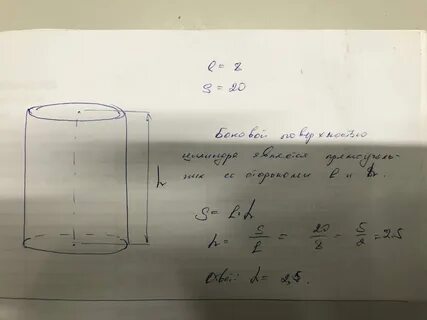 l = 8
S = 20
Боковой поверхностью
цилиндра является прямоуголь-
ник со сторонами l и h.
h
S = l·h
h = S/l = 20/8 = 5/2 = 2.5
Ответ h = 2,5.